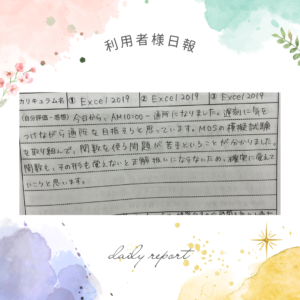 利用者様日報
カリキュラム名 ① Excel2019 ② Excel2019 ③ Excel2019
(自分評価・感想) 今日から、AM10:00〜通所になりました。遅刻に気を
つけながら通所を目指そうと思っています。MOSの模擬試験
を取り組んで、関数を使う問題が苦手ということが分かりました。
関数も、その形も覚えないと正解扱いにならないため、確実に覚えて
いこうと思います。
daily report